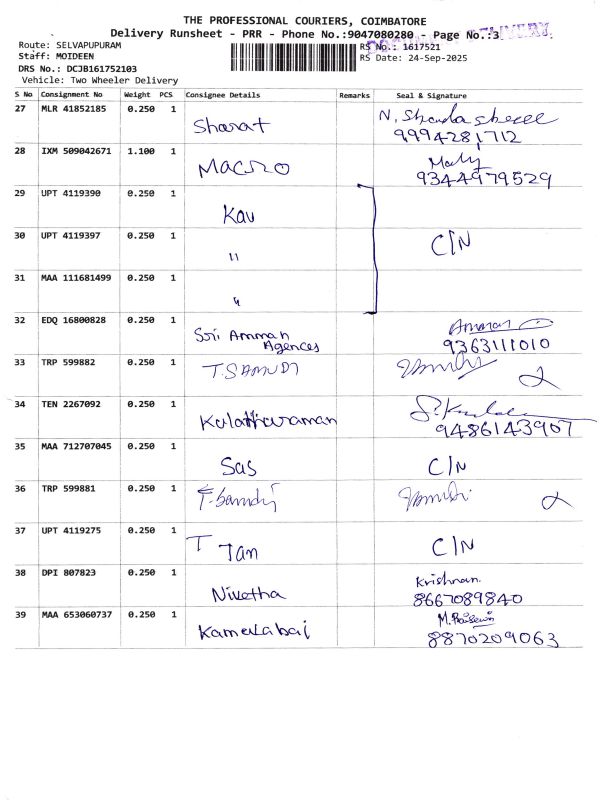 THE PROFESSIONAL COURIERS, COIMBATORE
Delivery Runsheet - PRR - Phone No.:9047080280 - Page No.:3
DELIVERY
Route: SELVAPUPURAM
RS No.: 1617521
Staff: MOIDEEN
RS Date: 24-Sep-2025
DRS No.: DCJB161752103
Vehicle: Two Wheeler Delivery
S No Consignment No Weight PCS Consignee Details Remarks Seal & Signature
27 MLR 41852185 0.250 1 Sharat
9994281712
28 IXM 509042671 1.100 1 Macro
9344979529
29 UPT 4119390 0.250 1 Kav
30 UPT 4119397 0.250 1 " C/N
31 MAA 111681499 0.250 1 "
32 EDQ 16800828 0.250 1 Sri Amman Agences Amman
9363111010
33 TRP 599882 0.250 1 T.SAMUDI
34 TEN 2267092 0.250 1 Kalathuraman
9486143907
35 MAA 712707045 0.250 1 Sas C/N
36 TRP 599881 0.250 1
37 UPT 4119275 0.250 1 T Tan C/N
38 DPI 807823 0.250 1 Nivetha Krishnan.
8667089840
39 MAA 653060737 0.250 1 Kamalabai
8870209063